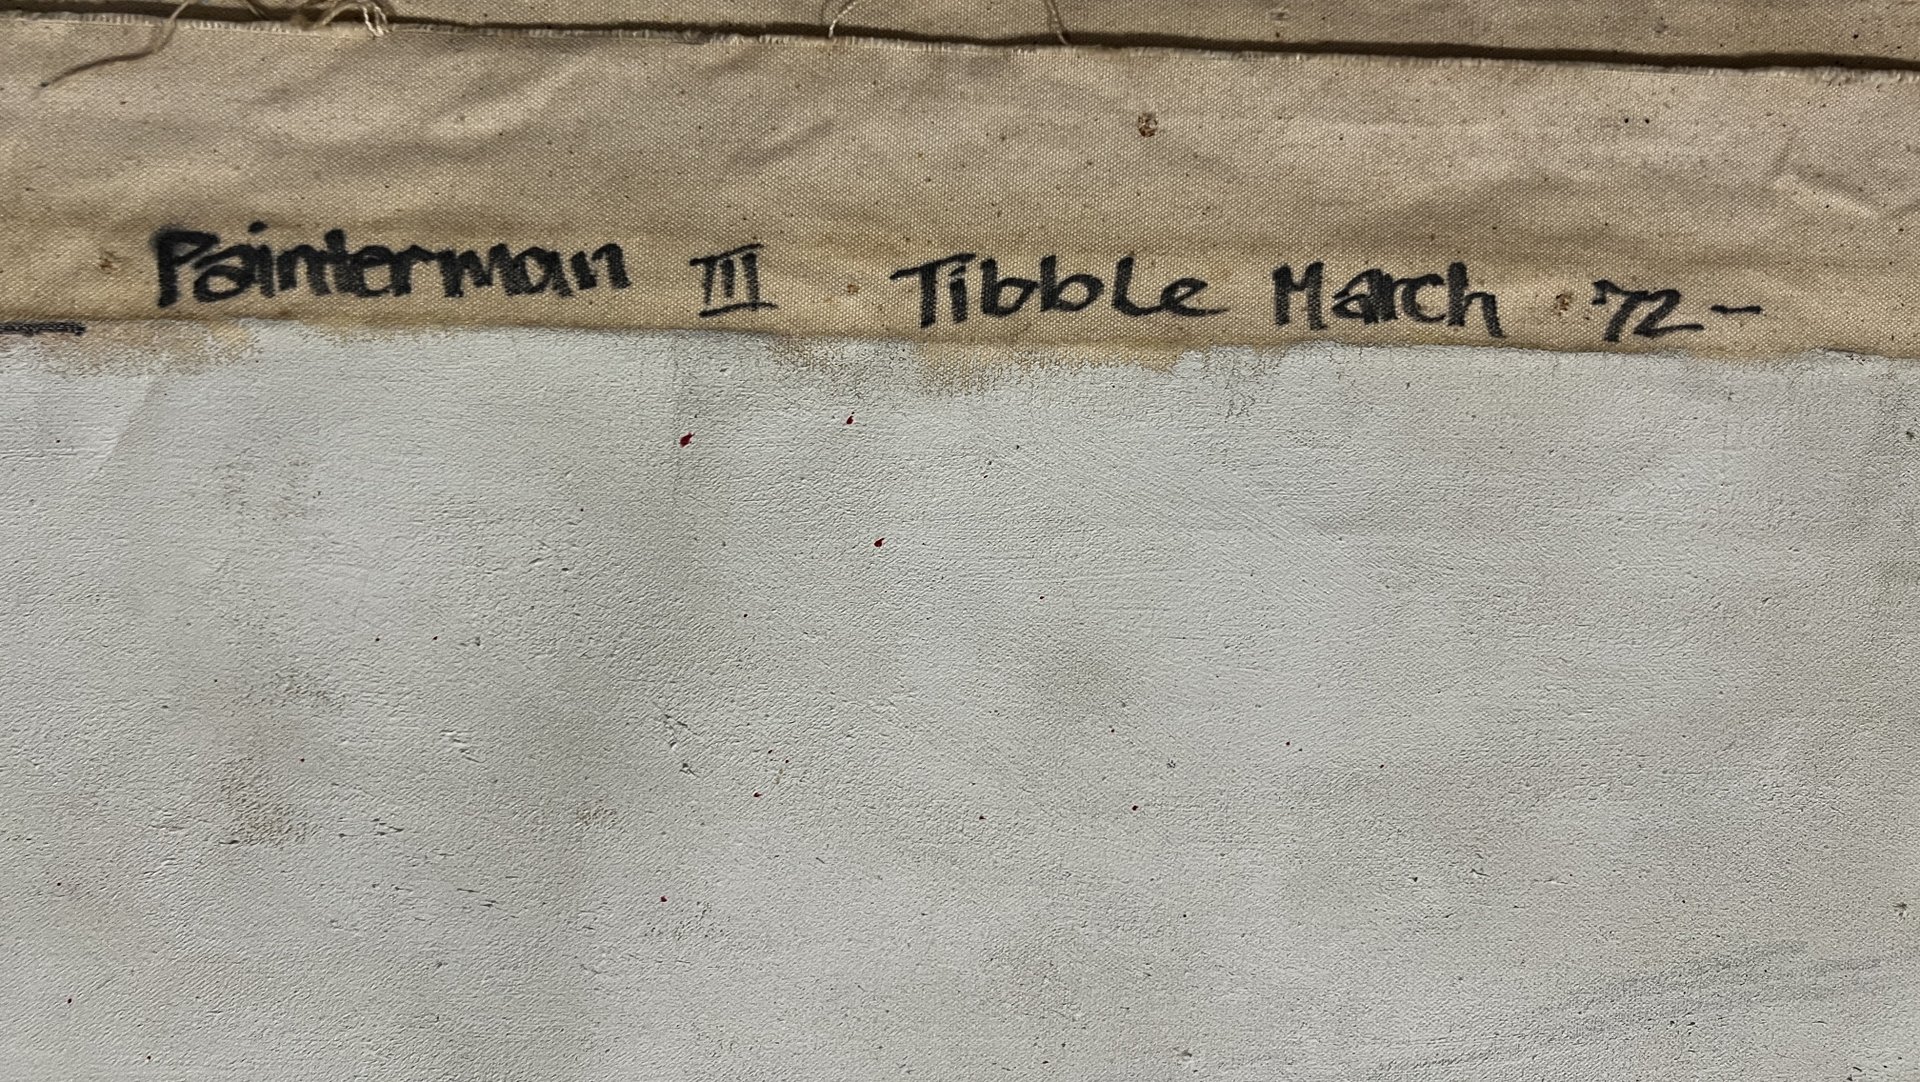 Painterman III Tibble March 72-